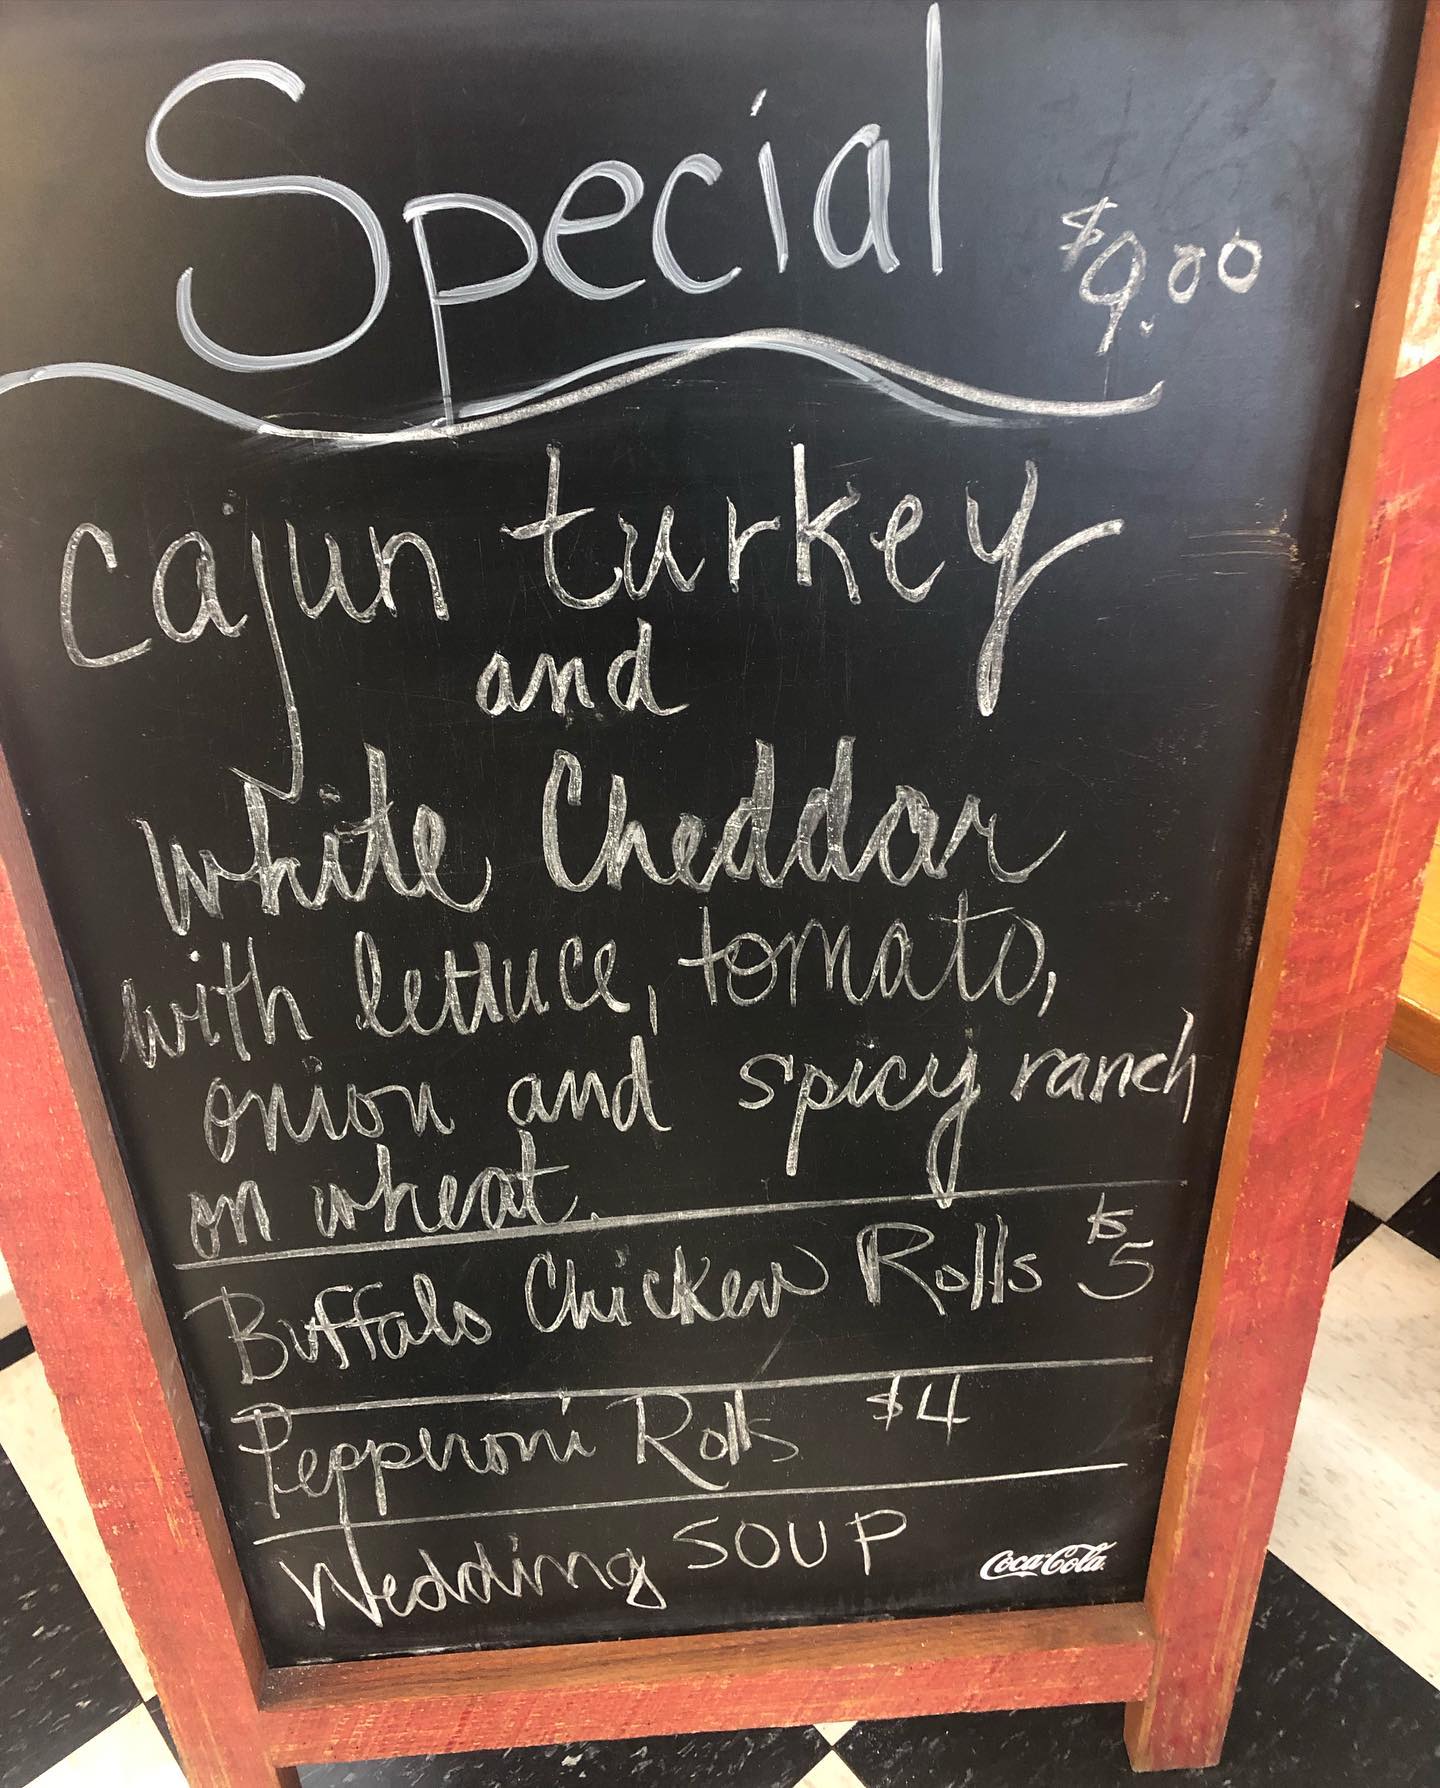 Special $9.00
Cajun turkey
and
white Cheddar
with lettuce, tomato,
onion and spicy ranch
on wheat.
Buffalo Chicken Rolls $5
Pepperoni Rolls $4
Wedding SOUP
Coca-Cola